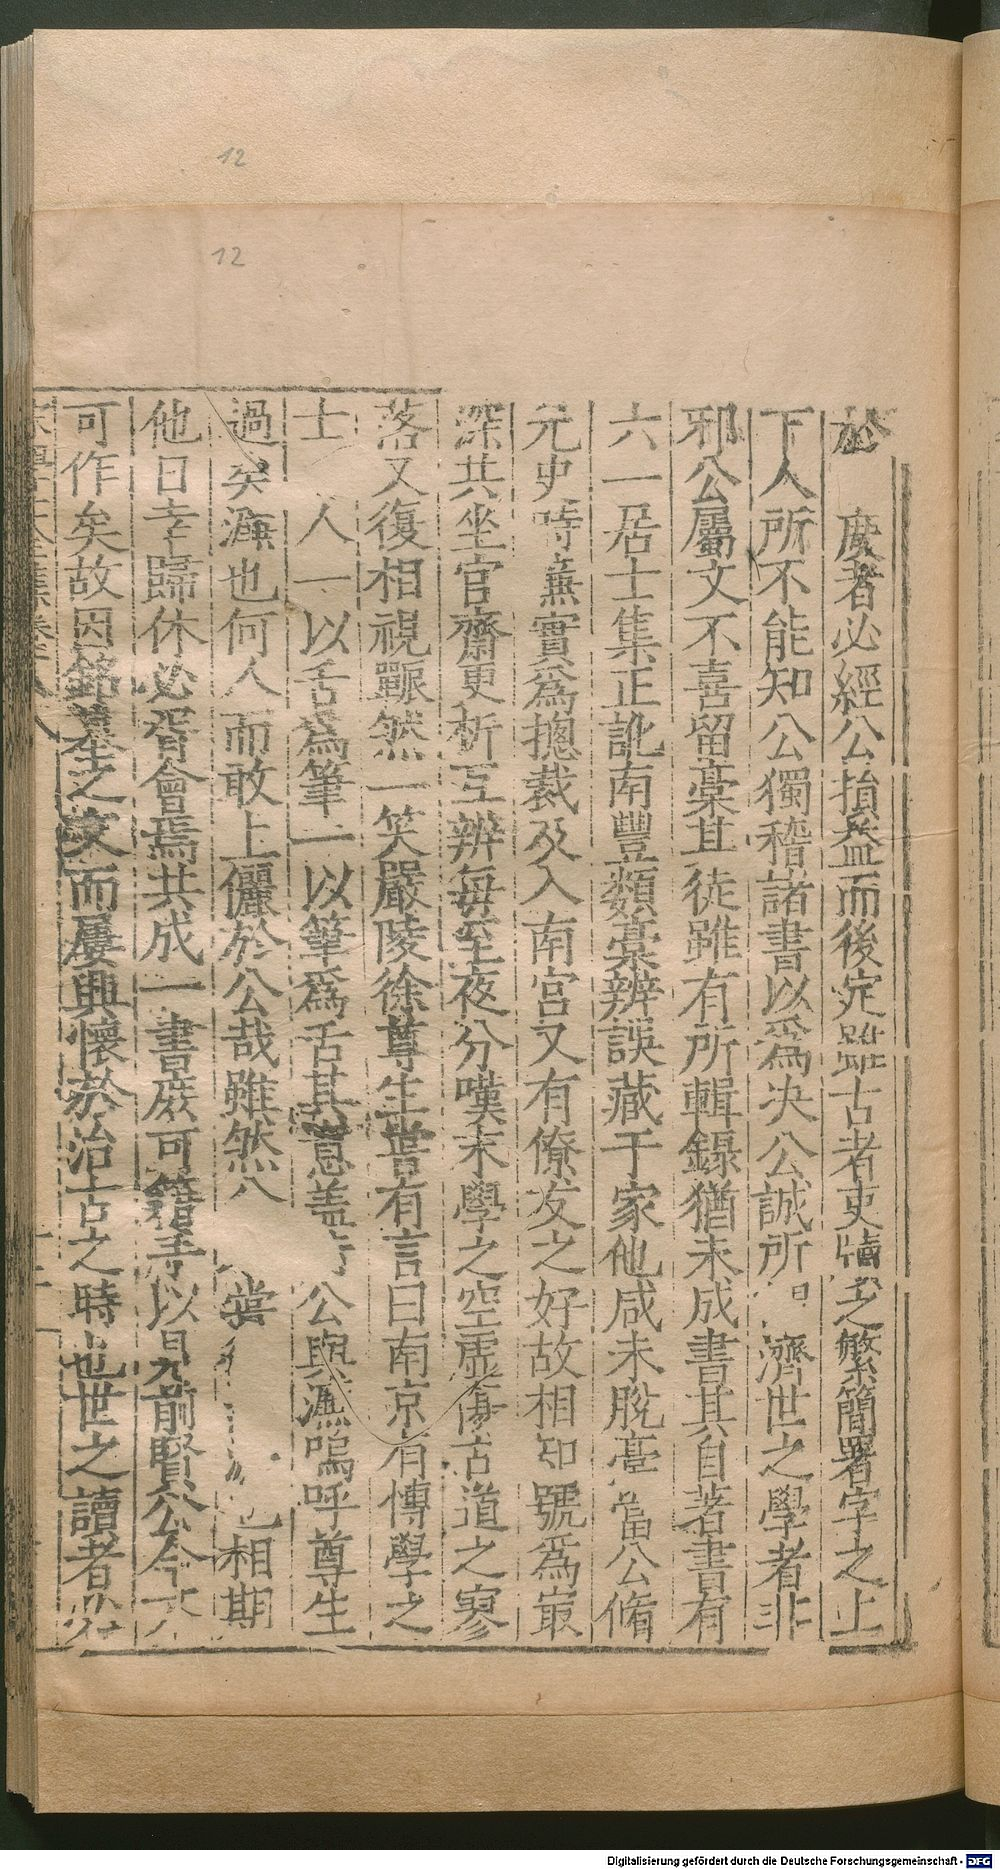 12
12
於 慶者必經公損益而後定雖古者吏牘之繁簡署字之上
下人所不能知公獨稽諸書以爲决公誠所 濟世之學者非
邪公屬文不喜留稾其徒雖有所輯錄猶未成書其自著書有
六一居士集正訛南豐類稾辨誤藏于家他咸未脫稾當公脩
元史時濂實爲揔裁及入南宮又有僚友之好故相知號爲㝡
深共坐官齋更析互辨每至夜分嘆末學之空虛傷古道之寥
落又復相視囅然一笑嚴陵徐尊生甞有言曰南京有愽學之
士 人一以舌爲筆一以筆爲舌其意盖 公與濂嗚呼尊生
過矣濂也何人而敢上儷於公哉雖然 甞 相期
他日幸歸休必胥會焉共成一書庶可籍手以見前賢公今
可作矣故因銘墓之文而屢興懷於治古之時也世之讀者
宋學士 卷 八
Digitalisierung gefördert durch die Deutsche Forschungsgemeinschaft - DFG